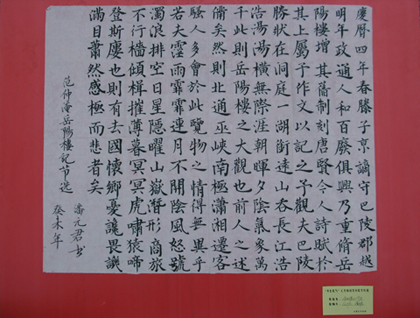 慶曆四年春滕子京謫守巴陵郡越
明年政通人和百廢俱興乃重脩岳
陽樓增其舊制刻唐賢今人詩賦於
其上屬予作文以記之予觀夫巴陵
勝狀在洞庭一湖銜遠山吞長江浩
浩湯湯橫無際涯朝暉夕陰氣象萬
千此則岳陽樓之大觀也前人之述
備矣然則北通巫峽南極瀟湘遷客
騷人多會於此覽物之情得無異乎
若夫霪雨霏霏連月不開陰風怒號
濁浪排空日星隱曜山嶽潛形商旅
不行檣傾楫摧薄暮冥冥虎嘯猿啼
登斯樓也則有去國懷鄉憂讒畏譏
滿目蕭然感極而悲者矣
范仲淹岳陽樓記节选
潘元君书
癸未年